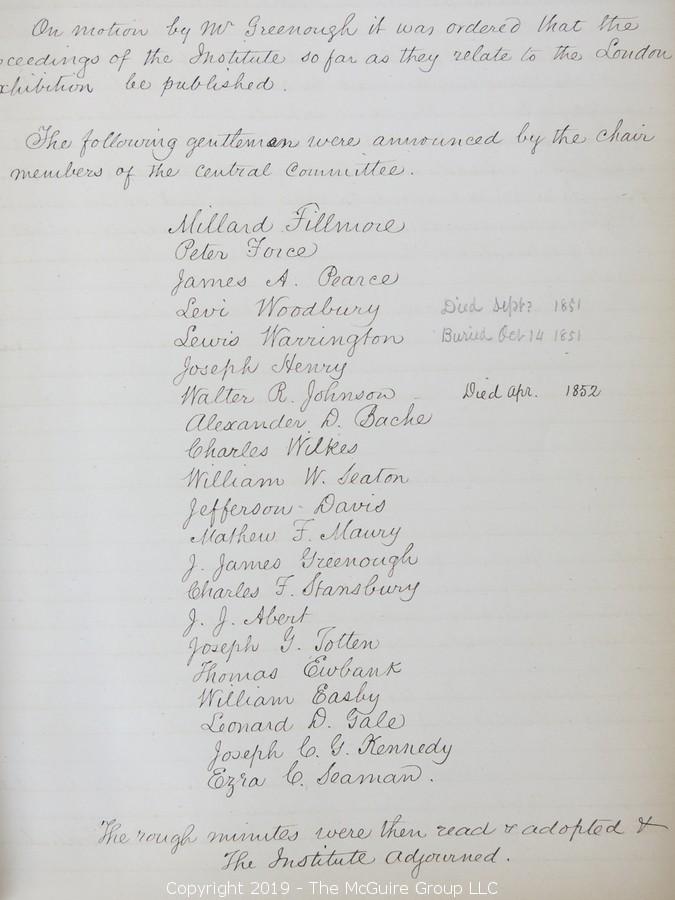 On motion by Mr Greenough it was ordered that the
oceedings of the Institute so far as they relate to the London
xhibition be published.
The following gentlemen were announced by the chair
members of the central Committee.
Millard Fillmore
Peter Force
James A. Pearce
Levi Woodbury Died Sept? 1851
Lewis Warrington Buried Oct 14 1851
Joseph Henry
Walter R. Johnson Died Apr. 1852
Alexander D. Bache
Charles Wilkes
William W. Seaton
Jefferson Davis
Mathew F. Maury
J. James Greenough
Charles F. Stansbury
J. J. Abert
Joseph G. Totten
Thomas Ewbank
William Easby
Leonard D. Gale
Joseph C. G. Kennedy
Ezra C. Seaman.
The rough minutes were then read & adopted &
The Institute adjourned.
Copyright 2019 - The McGuire Group LLC